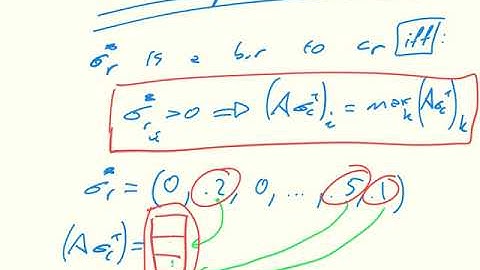 σ*r is a b.r to σr iff:
σ*r i > 0 ⟹ (Aσcᵀ)i = maxk (Aσcᵀ)k
σ*r = (0, .2, 0, ..., .5, .1)
(Aσcᵀ) =